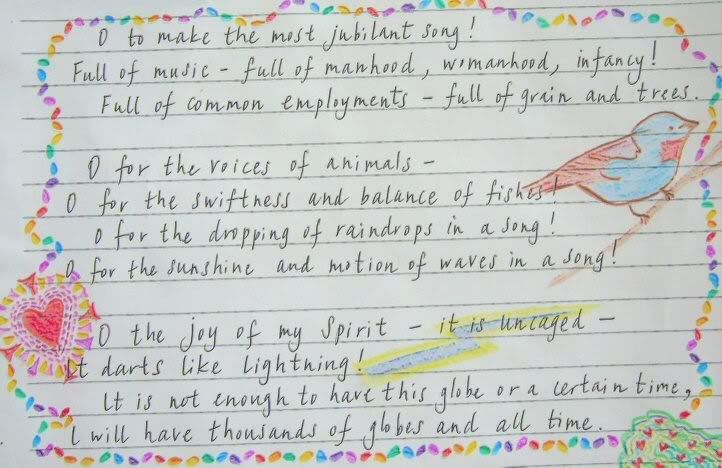 O to make the most jubilant song!
Full of music - full of manhood, womanhood, infancy!
Full of common employments - full of grain and trees.
O for the voices of animals -
O for the swiftness and balance of fishes!
O for the dropping of raindrops in a song!
O for the sunshine and motion of waves in a song!
O the joy of my Spirit - it is uncaged -
It darts like lightning!
It is not enough to have this globe or a certain time,
I will have thousands of globes and all time.